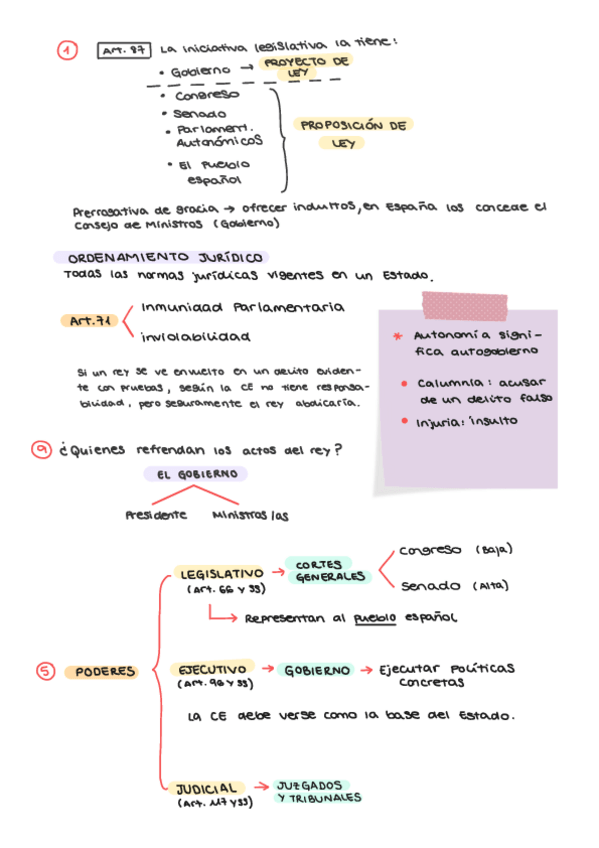 1 Art. 87 La iniciativa legislativa la tiene:
• Gobierno → PROYECTO DE
LEY
• Congreso
• Senado
• Parlament.
Autonómicos
• El pueblo
español
PROPOSICIÓN DE
LEY
Prerrogativa de gracia → ofrecer indultos, en España los concede el
Consejo de Ministros (Gobierno)
ORDENAMIENTO JURÍDICO
Todas las normas jurídicas vigentes en un Estado.
Art. 71
Inmunidad Parlamentaria
inviolabilidad
Si un rey se ve envuelto en un delito eviden-
te con pruebas, según la CE no tiene responsa-
bilidad, pero seguramente el rey abdicaría.
* Autonomía signi-
fica autogobierno
• Calumnia: acusar
de un delito falso
• Injuria: insulto
9 ¿Quienes refrendan los actos del rey?
EL GOBIERNO
Presidente Ministros/as
5 PODERES
LEGISLATIVO → CORTES
GENERALES
(Art. 66 y ss)
Congreso (Baja)
Senado (Alta)
Representan al pueblo español
EJECUTIVO → GOBIERNO → Ejecutar políticas
concretas
(Art. 98 y ss)
La CE debe verse como la base del Estado.
JUDICIAL → JUZGADOS
Y TRIBUNALES
(Art. 117 y ss)